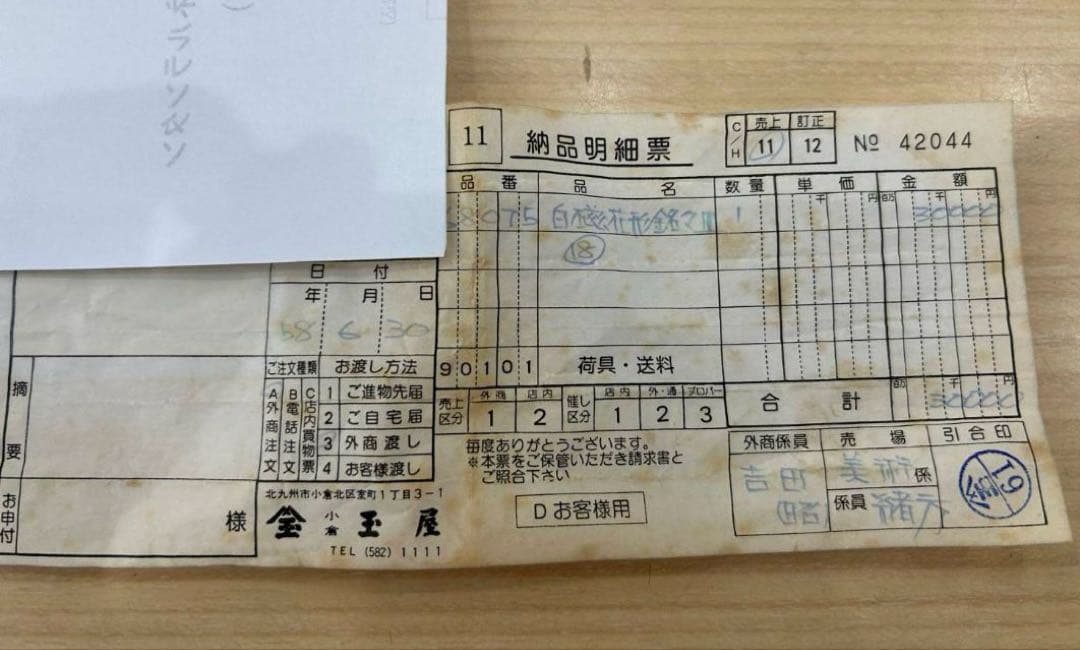 ボラルソ&ソ
11
納品明細票
C/H
売上 訂正
11 12
№ 42044
品番 品名 数量 単価 金額
千 円 百万 千 円
8075 白磁花形銘々皿 1 30000
⑱
日付
年 月 日
58 6 30
90101 荷具・送料
ご注文種類 お渡し方法
A外商注文
B電話注文
C店内買物票
1 ご進物先届
2 ご自宅届
3 外商渡し
4 お客様渡し
売上区分 外商 1 店内 2
催し区分 店内 1 外・通 2 プロパー 3
合計 百万 千 円 30000
摘要
お申付
様
毎度ありがとうございます。
※本票をご保管いただき請求書と
ご照合下さい
Dお客様用
外商係員 売場 引合印
吉田 美術係
係員 緒方
19
北九州市小倉北区室町1丁目3-1
小倉 玉屋
TEL (582) 1111